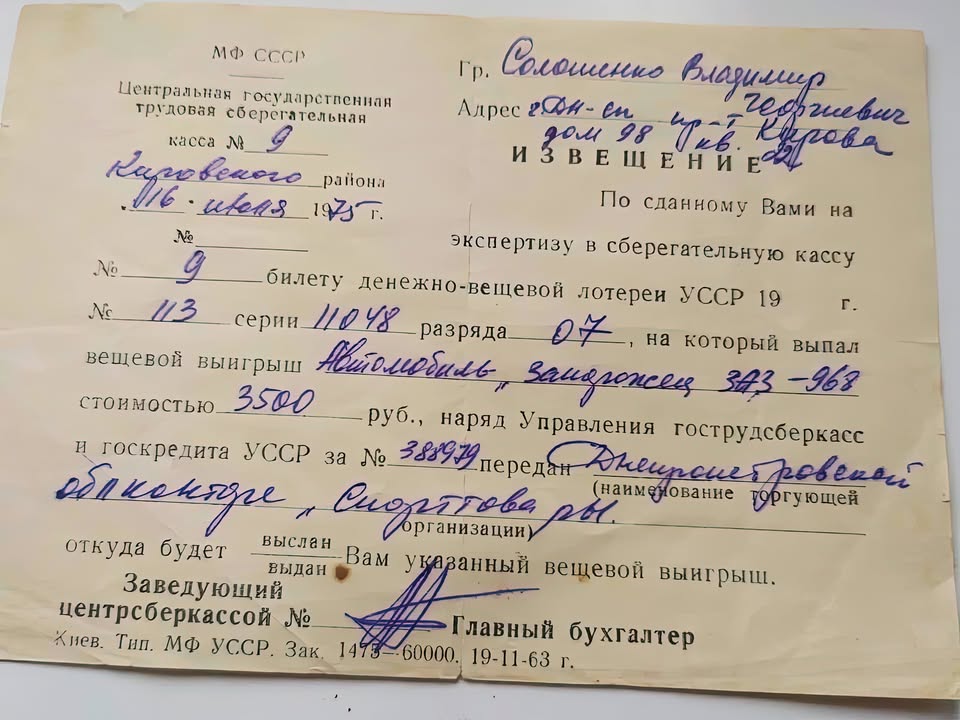 МФ СССР
Центральная государственная
трудовая сберегательная
касса № 9
Кировского района
"16" июня 1975 г.
№
Гр. Солошенко Владимир
Георгиевич
Адрес г. Дн-ск пр-т Кирова
дом 98 кв.
ИЗВЕЩЕНИЕ
По сданному Вами на
экспертизу в сберегательную кассу
№ 9 билету денежно-вещевой лотереи УССР 19 г.
№ 113 серии 11048 разряда 07, на который выпал
вещевой выигрыш Автомобиль „Запорожец ЗАЗ-968
стоимостью 3500 руб., наряд Управления гострудсберкасс
и госкредита УССР за № 388979 передан Днепропетровской
(наименование торгующей
облконторе „Спорттовары.
организации)
откуда будет выслан
выдан Вам указанный вещевой выигрыш.
Заведующий
центрсберкассой №
Главный бухгалтер
Киев. Тип. МФ УССР. Зак. 1475—60000. 19-11-63 г.